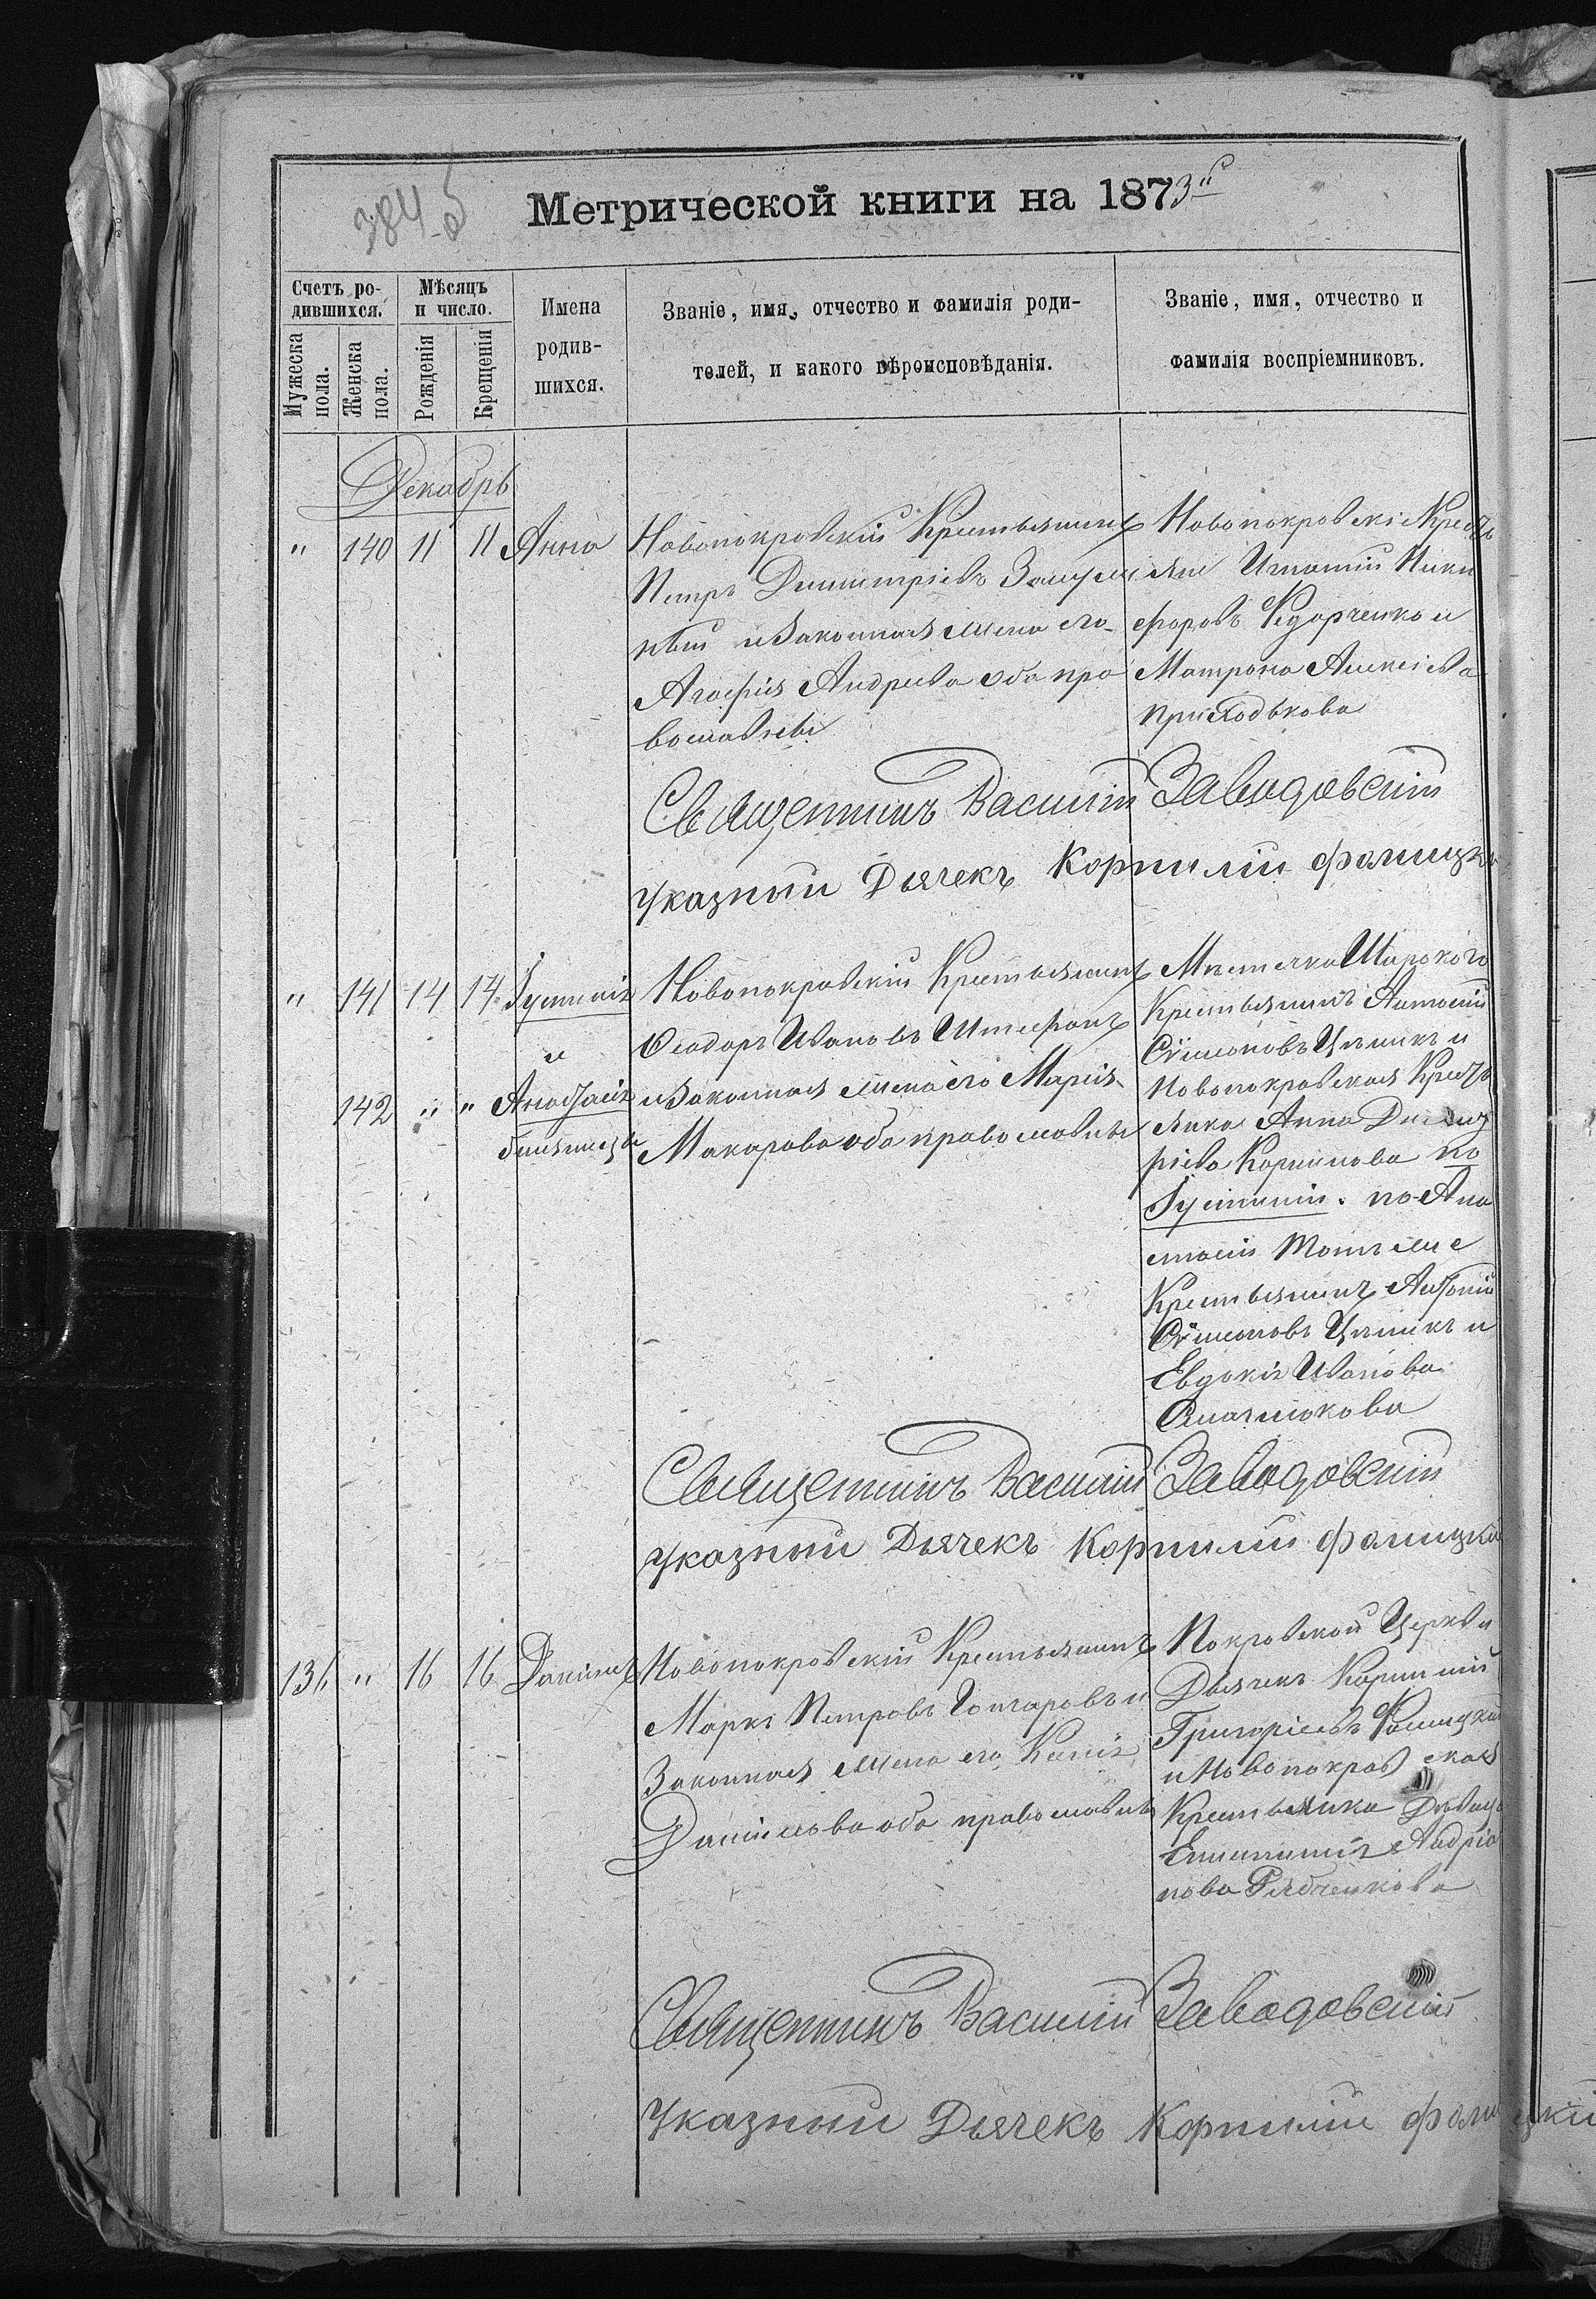 384 об
Метрической книги на 1873й
Счетъ ро-
дившихся.
Мужеска
пола.
Женска
пола.
Мѣсяцъ
и число.
Рожденія
Крещенія
Имена
родив-
шихся.
Званіе, имя, отчество и фамилія роди-
телей, и какого вѣроисповѣданія.
Званіе, имя, отчество и
фамилія воспріемниковъ.
Декабрь
" 140 11 11 Анна
Новопокровскій Крестьянинъ
Петръ Димитріевъ
и Законная жена его
Агафія Андреева оба пра
вославные
Новопокровскіе Крест
яне Игнатій Ники
форовъ Федорченко и
Матрона Алексіева
Приходькова
Священникъ Василій Заводовскій
Указный Дьячекъ Корнилій Фалицкій
" 141 14 14 Іустинія
и
142 " " Анастасія
близнецы
Новопокровскій Крестьянинъ
Ѳеодоръ Ивановъ Штефанъ
и Законная жена его Марія
Макарова оба православные
Местечка Широкого
Крестьянинъ Антоній
Сѵмеоновъ и
Новопокровская Крестъ
янка Анна Димит
ріева Корнилова по
Іустиніи. по Ана
стасіи тотъ же
Крестьянинъ Антоній
Сѵмеоновъ и
Евдокія Иванова
Священникъ Василій Заводовскій
Указный Дьячекъ Корнилій Фалицкій
136 " 16 16 Даніилъ
Новопокровскій Крестьянинъ
Маркъ Петровъ Гончаровъ и
Законная жена его Ксенія
Даніилова оба православные
Покровской Церкви
Дьячекъ Корнилій
Григоріевъ Фалицкій
и Новопокровская
Крестьянка Девица
Андріа
нова Рябченкова
Священникъ Василій Заводовскій
Указный Дьячекъ Корнилій Фалицкій